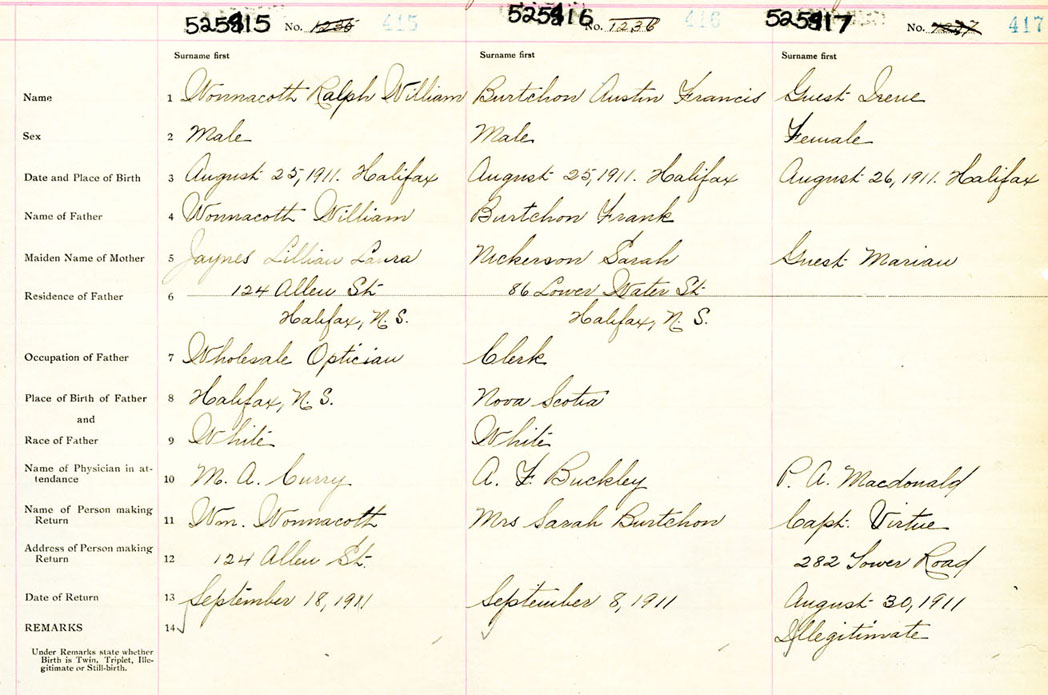 525415 No. 1235 415 525416 No. 1236 416 525417 No. 1237 417
Surname first Surname first Surname first
Name 1 Wonnacott Ralph William Burtchon Austin Francis Guest Irene
Sex 2 Male Male Female
Date and Place of Birth 3 August 25, 1911. Halifax August 25, 1911. Halifax August 26, 1911. Halifax
Name of Father 4 Wonnacott William Burtchon Frank
Maiden Name of Mother 5 Jaynes Lillian Laura Nickerson Sarah Guest Marian
Residence of Father 6 124 Allen St. 86 Lower Water St.
Halifax, N. S. Halifax, N. S.
Occupation of Father 7 Wholesale Optician Clerk
Place of Birth of Father 8 Halifax, N. S. Nova Scotia
and
Race of Father 9 White White
Name of Physician in at-
tendance 10 M. A. Curry A. F. Buckley P. A. Macdonald
Name of Person making
Return 11 Wm. Wonnacott Mrs Sarah Burtchon Capt. Virtue
Address of Person making
Return 12 124 Allen St. 282 Tower Road
Date of Return 13 September 18, 1911 September 8, 1911 August 30, 1911
REMARKS 14 Illegitimate
Under Remarks state whether
Birth is Twin, Triplet, Ille-
gitimate or Still-birth.